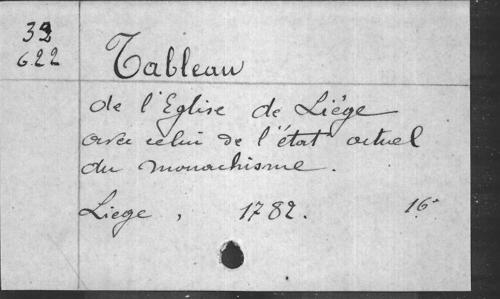 32
622
Tableau
de l'Eglise de Liége
avec celui de l'état actuel
du monachisme.
Liege, 1782. 16°